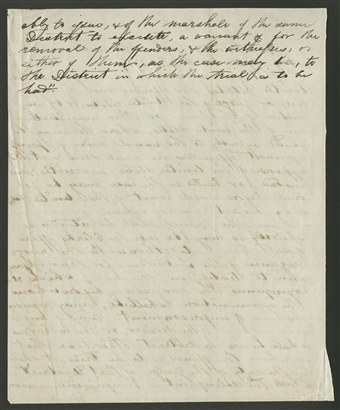 ably to issue, & of the marshal of the same
District to execute, a warrant & for the
removal of the offenders, & the witnesses, or
either of them, as the case may be, to
the District in which the trial is to be
had".